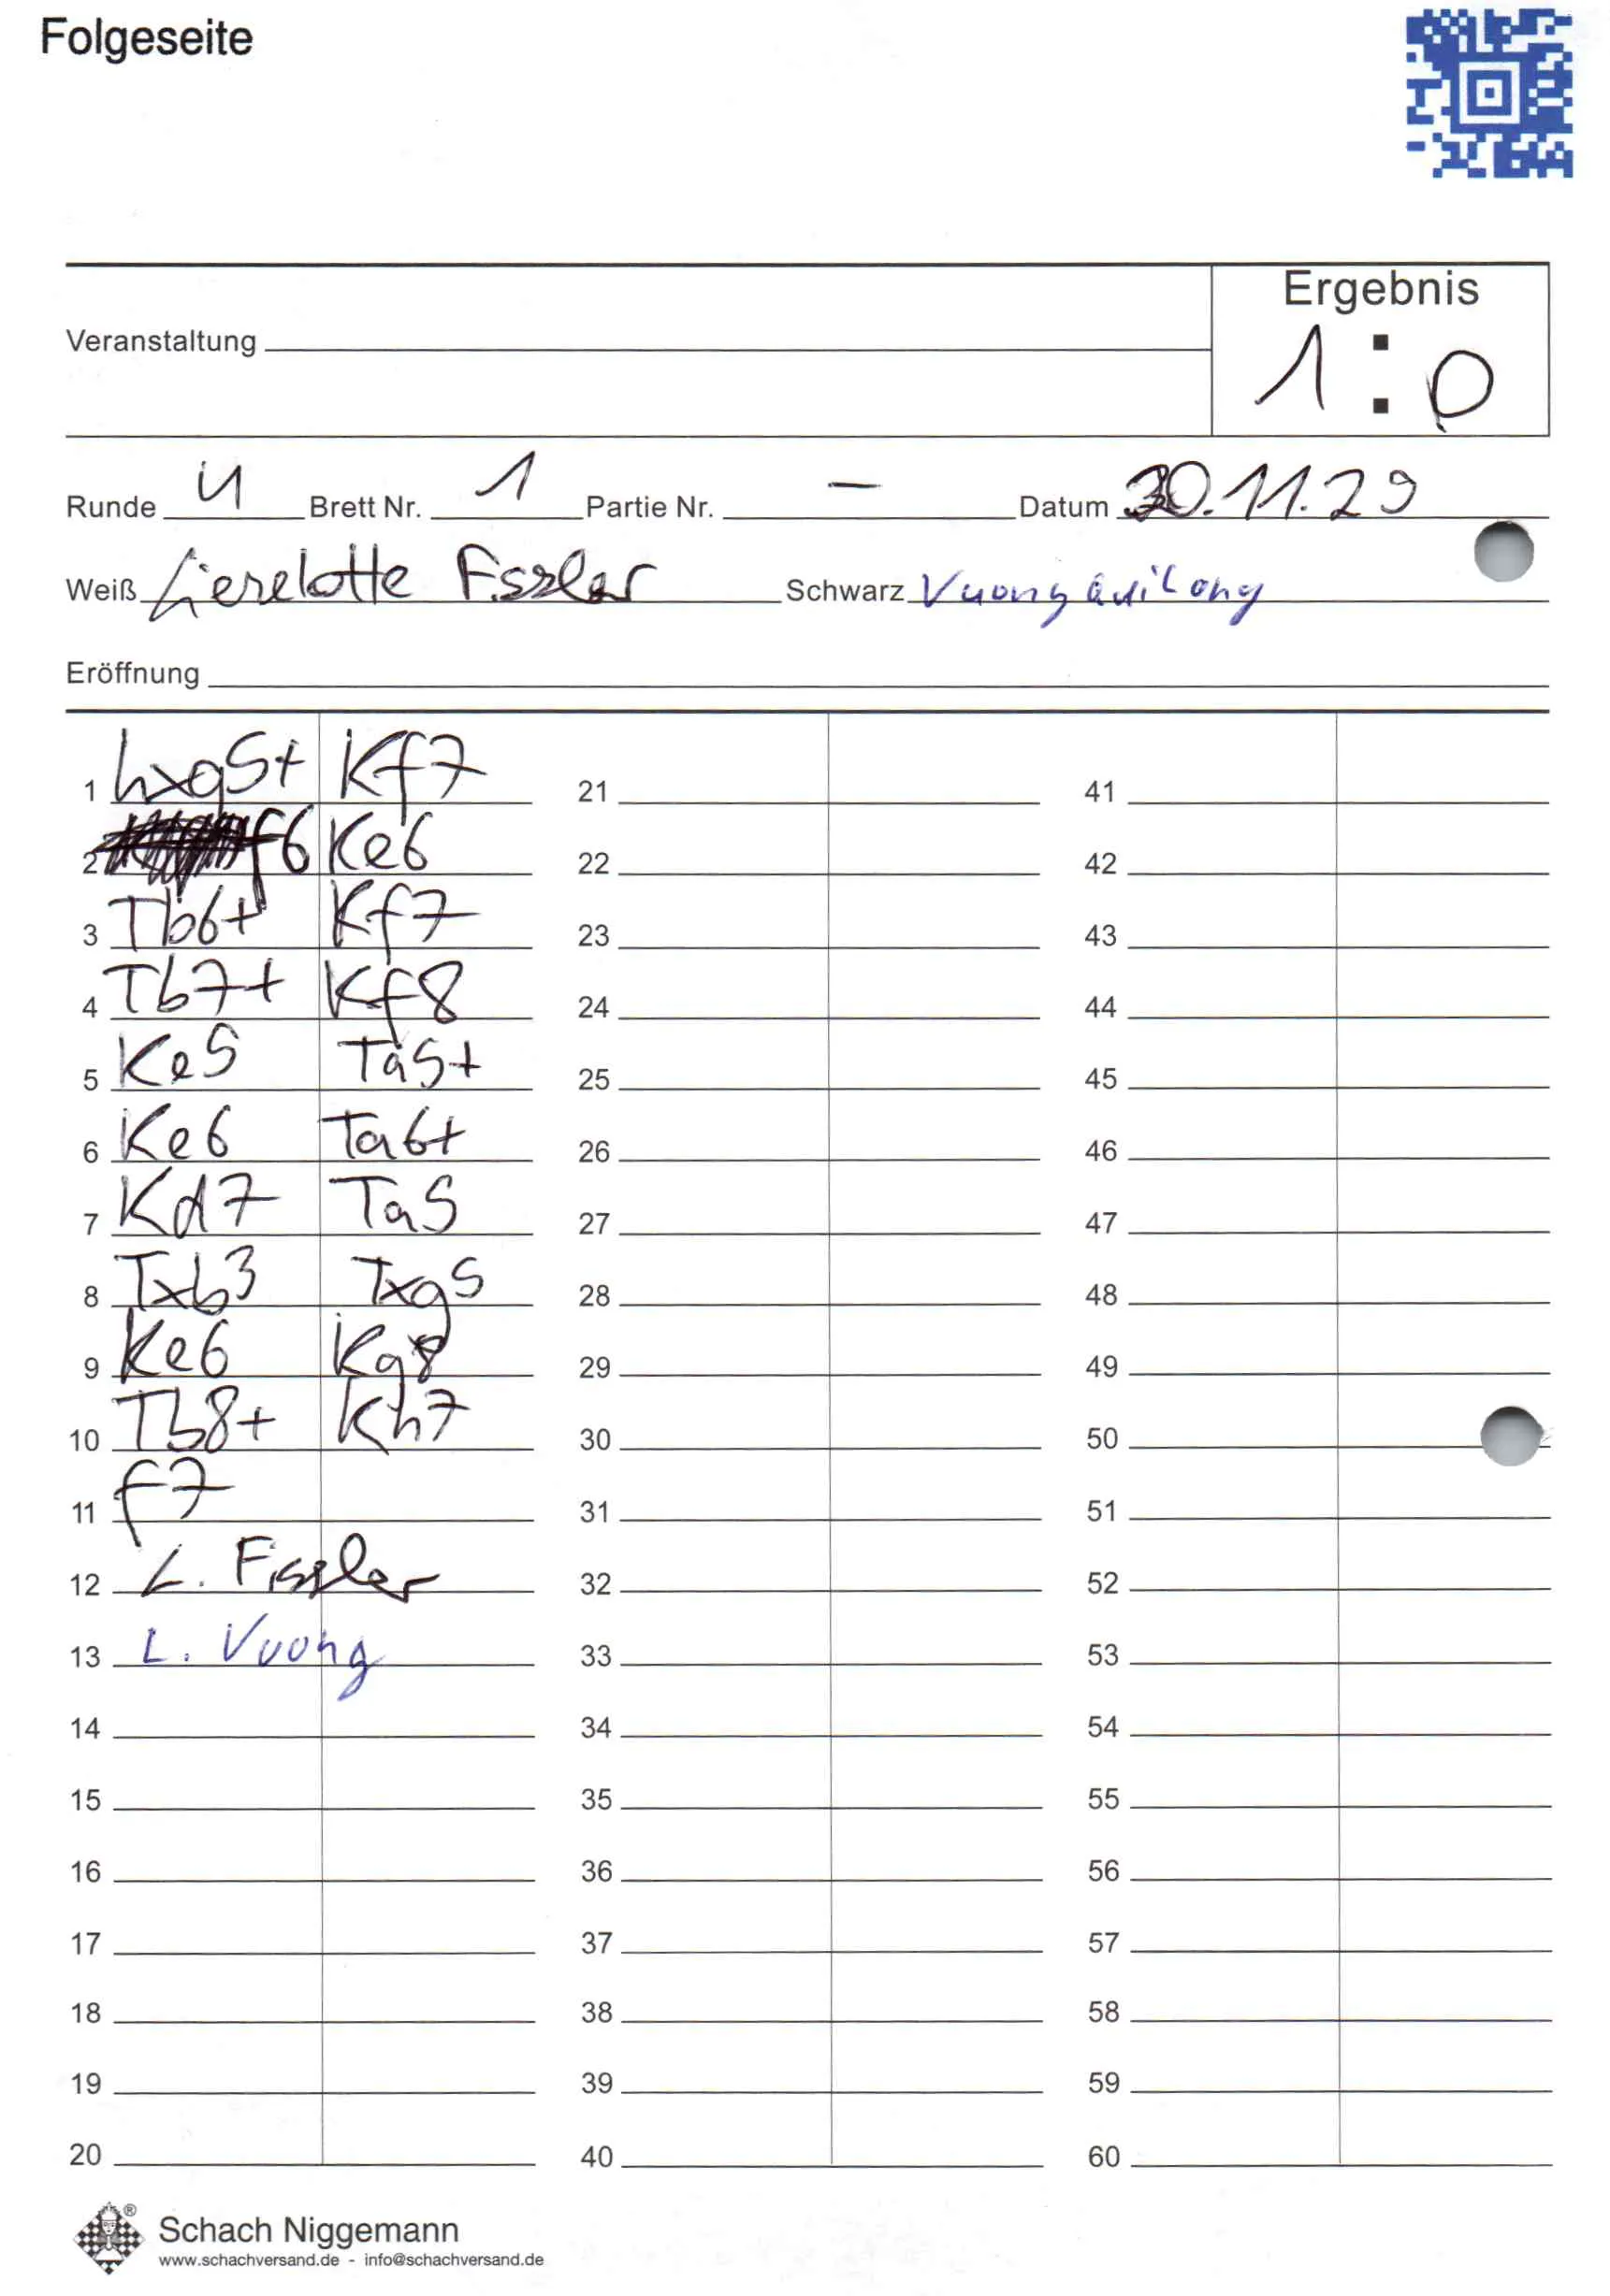 Folgeseite
Ergebnis
Veranstaltung
1 : 0
Runde 4 Brett Nr. 1 Partie Nr. — Datum 30.11.29
Weiß Lieselotte Fisszler Schwarz Vuong Qui Long
Eröffnung
1 hxg5+ Kf7 21 41
2 f6 Ke6 22 42
3 Tb6+ Kf7 23 43
4 Tb7+ Kf8 24 44
5 Ke5 Ta5+ 25 45
6 Ke6 Ta6+ 26 46
7 Kd7 Ta5 27 47
8 Txb3 Txg5 28 48
9 Ke6 Kg8 29 49
10 Tb8+ Kh7 30 50
11 f7 31 51
12 L. Fisszler 32 52
13 L. Vuong 33 53
14 34 54
15 35 55
16 36 56
17 37 57
18 38 58
19 39 59
20 40 60
® Schach Niggemann
www.schachversand.de - info@schachversand.de